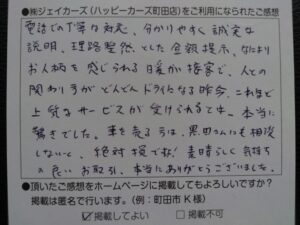 ●㈱ジェイカーズ（ハッピーカーズ町田店）をご利用になられたご感想
電話での丁寧な対応、分かりやすく誠実な
説明、理路整然とした金額提示、なにより
お人柄を感じられる暖かい接客で、人との
関わり事がどんどんドライになる昨今、これほど
上質なサービスが受けられるとは、本当に
驚きでした。車を売る時は、黒田さんにも相談
しないと、絶対損ですね!素晴らしく気持ち
の良いお取引、本当にありがとうございました。
●頂いたご感想をホームページに掲載してもよろしいですか?
掲載は匿名で行います。（例：町田市 K様）
☑掲載してよい □掲載不可